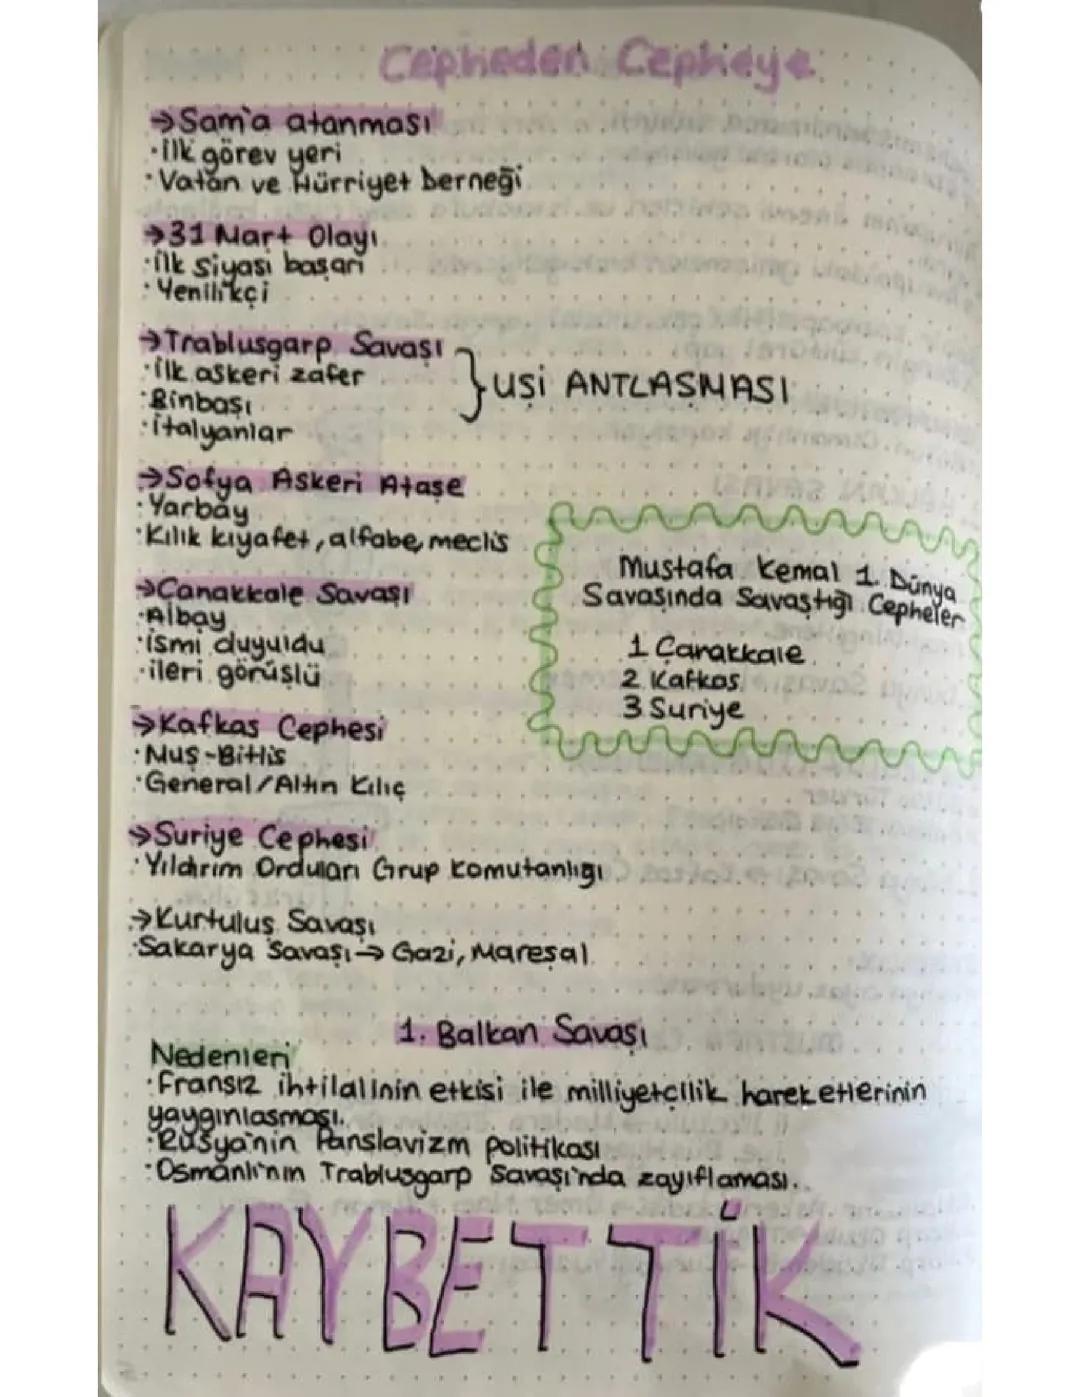 Cepheden Cepheye
→Şam'a atanması
·İlk görev yeri
·Vatan ve Hürriyet Derneği
→31 Mart Olayı
·İlk siyası başarı
·Yenilikçi
→Trablusgarp Savaşı
·İlk askeri zafer
·Binbaşı
·İtalyanlar
}UŞİ ANTLAŞMASI
→Sofya Askeri Ataşe
·Yarbay
·Kılık kıyafet, alfabe, meclis
→Çanakkale Savaşı
·Albay
·İsmi duyuldu
·ileri görüşlü
Mustafa Kemal 1. Dünya
Savaşında Savaştığı Cepheler
1 Çanakkale
2 Kafkas
3 Suriye
→Kafkas Cephesi
·Muş-Bitlis
·General/Altın Kılıç
→Suriye Cephesi
·Yıldırım Orduları Grup komutanlığı
→Kurtuluş Savaşı
·Sakarya Savaşı→Gazi, Mareşal
1. Balkan Savaşı
Nedenleri
·Fransız ihtilalinin etkisi ile milliyetçilik hareketlerinin
yaygınlaşması.
·Rusya'nin Panslavizm politikası
·Osmanlı'nın Trablusgarp Savaşı'nda zayıflaması..
KAYBETTİK